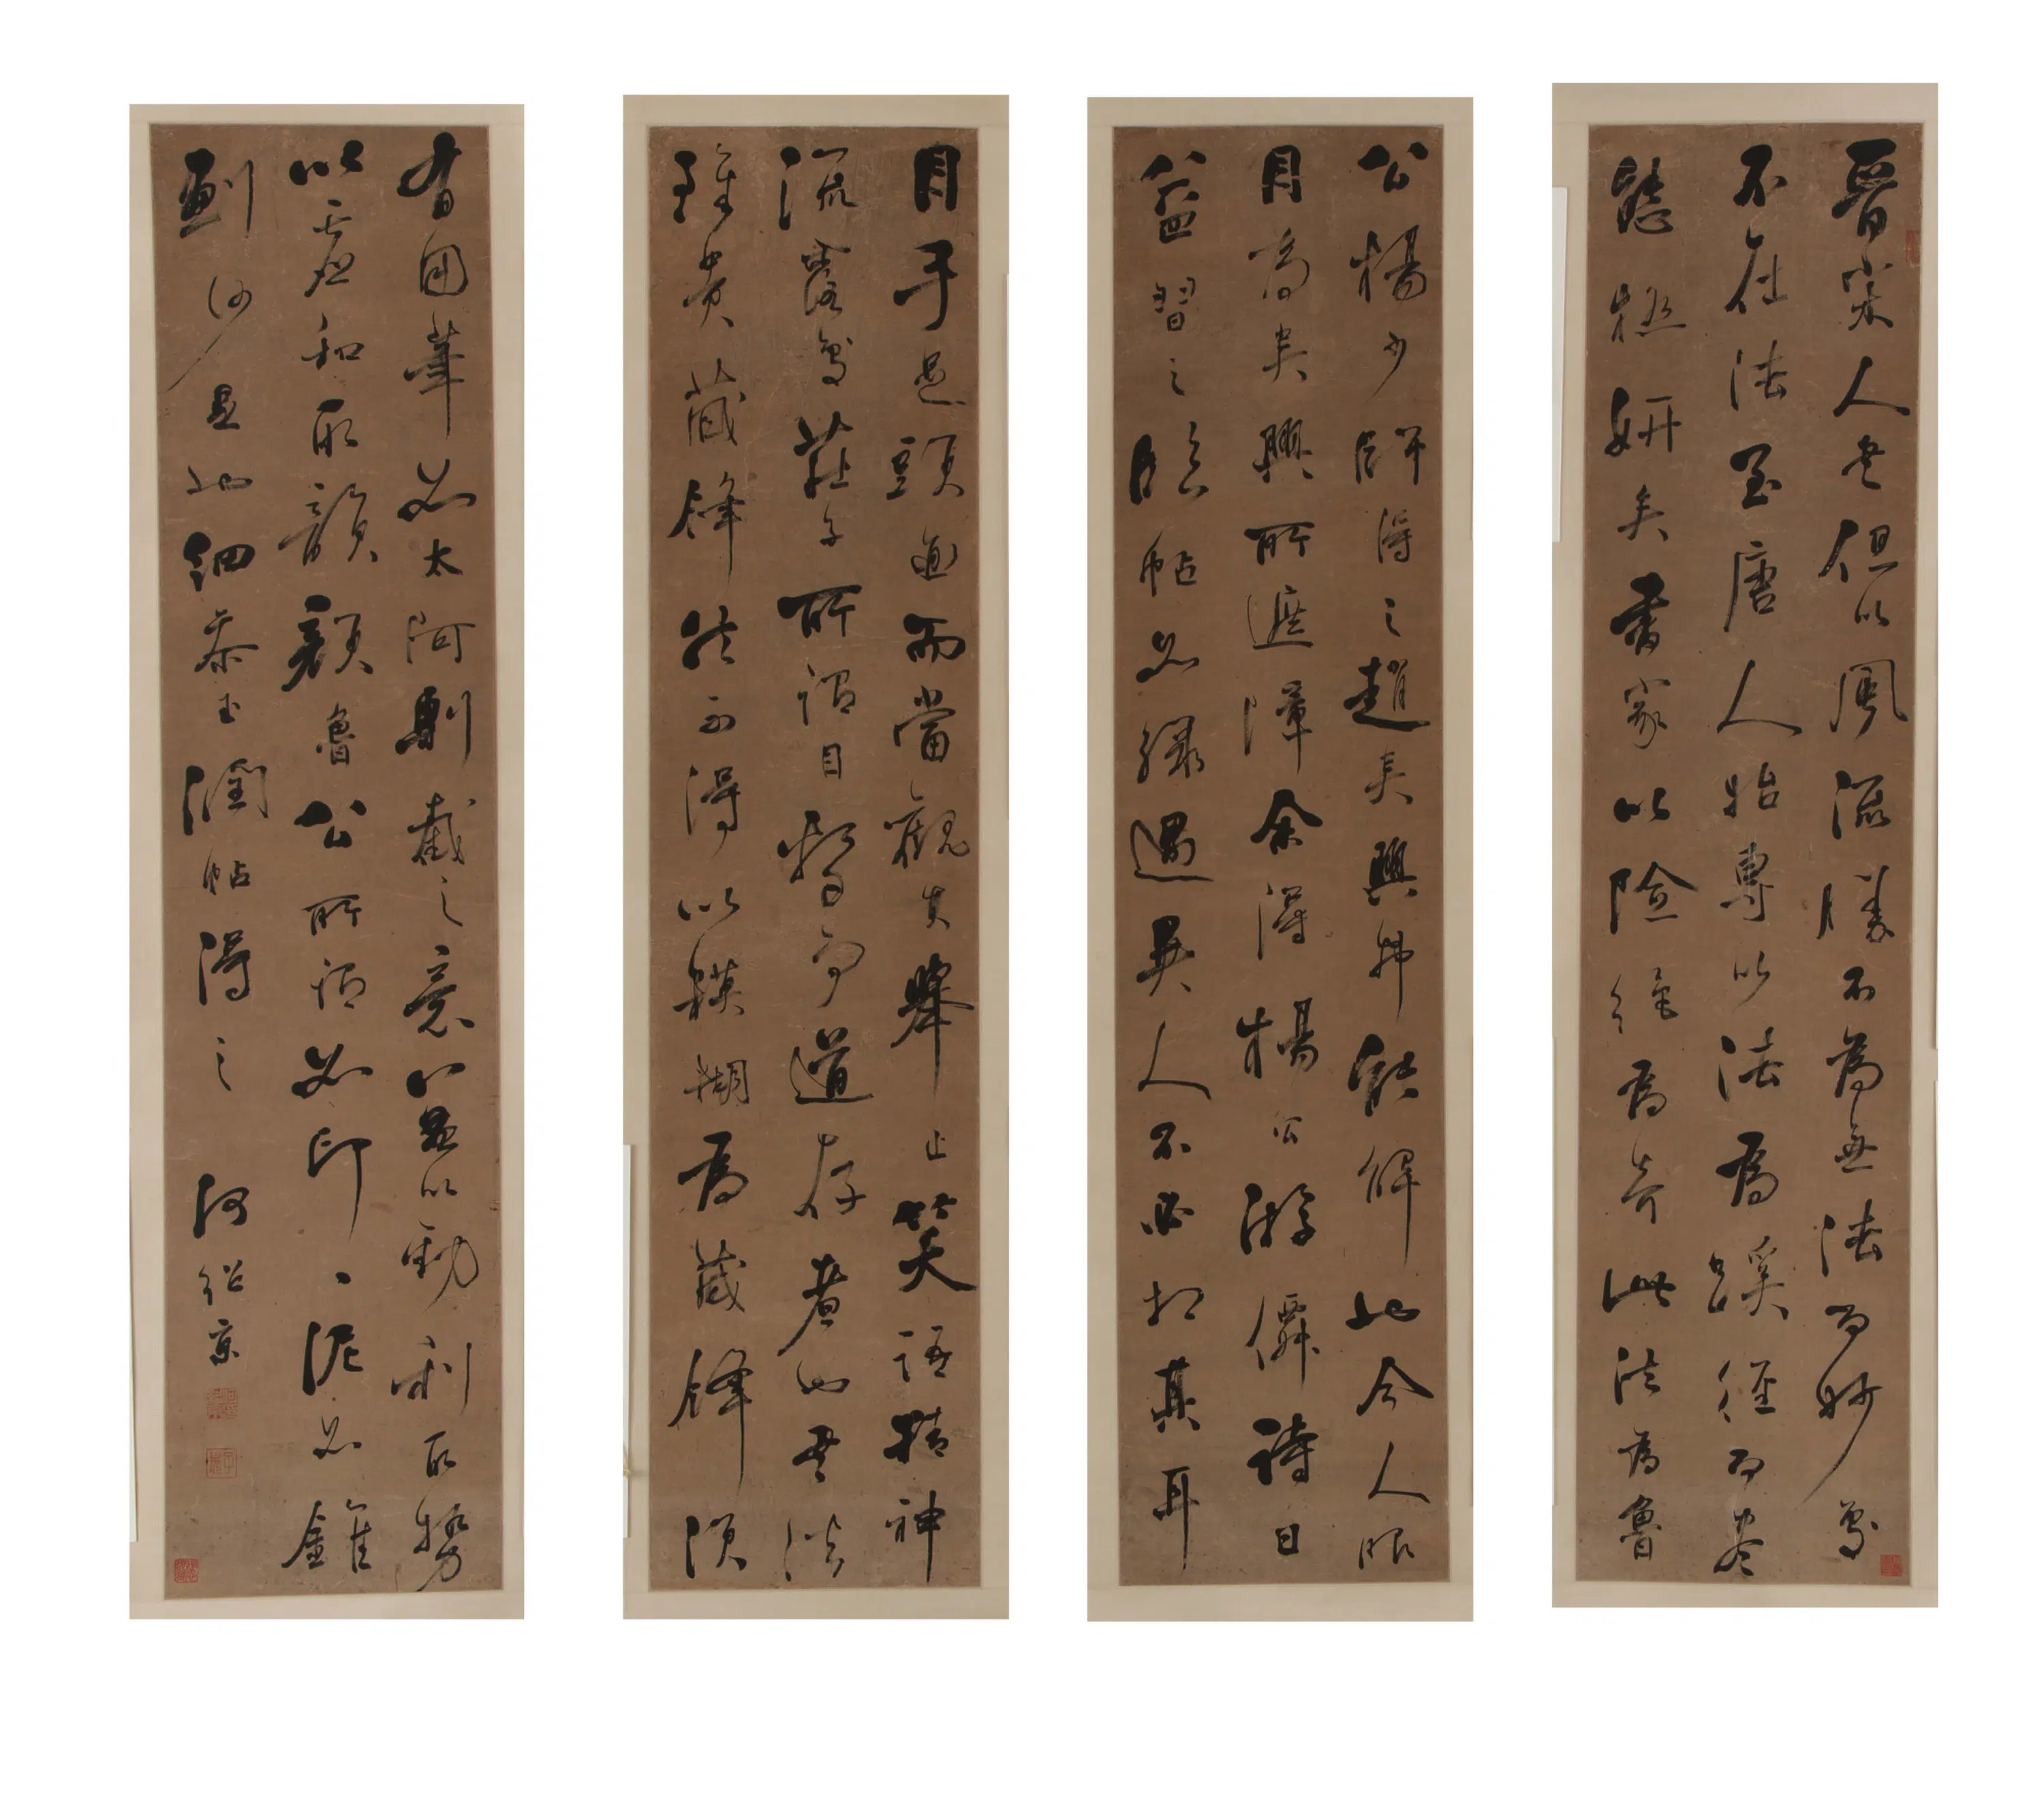 晉宋人書但以風流勝不為無法而妙處
不在法至唐人始專以法為蹊徑而盡
態極妍矣書家以險絕為奇此法為魯
公楊少師得之趙吳興弗能解此今人眼
目為吳興所遮障余得楊公游僊詩日
益習之臨帖如驟遇異人不必相其耳
目手足頭面而當觀其舉止笑語精神
流露處莊子所謂目擊而道存者也書法
雖貴藏鋒然不得以模糊為藏鋒須
有用筆如太阿剸截之意蓋以勁利取勢
以虛和取韻顏魯公所謂如印丶泥如錐
劃沙是也細參玉潤帖得之 何紹京